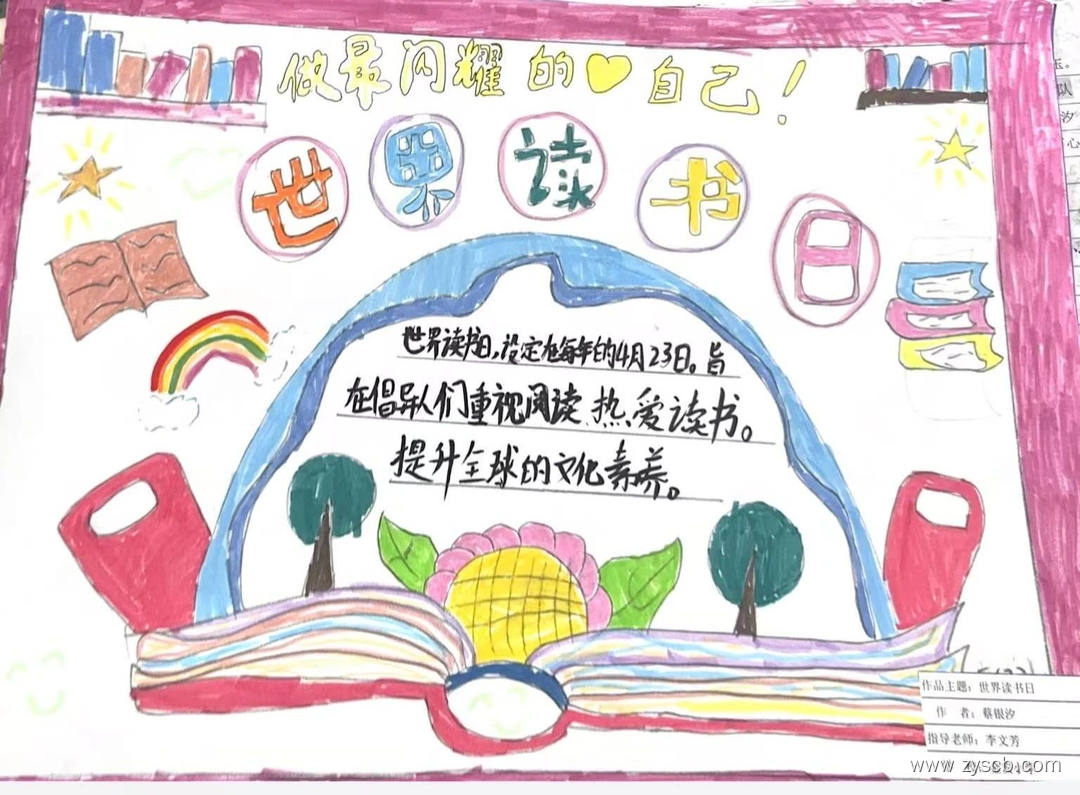 做最闪耀的自己！
世界读书日
世界读书日，设定在每年的4月23日。旨
在倡导人们重视阅读、热爱读书。
提升全球的文化素养。
作品主题：世界读书日
作 者：蔡银汐
指导老师：李文芳
www.zyscb.com